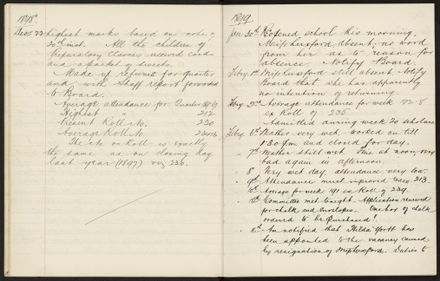 1898.
Dec. 22 highest marks based on work of
20th inst. All the children of
Preparatory Classes received cards
and a packet of sweets.
Made up returns for quarter
and, with Staff report forwarded
to Board.
Average attendance for December
Highest " 212
Present Roll No. 220
Average Roll No.
The No. on Roll is exactly
the same as on closing day
last year (1897) viz 220.
1899.
Jan 30th Reopened school this morning.
Miss Hunsford absent; no word
from her as to reason for
absence. Notify Board.
Feby 1st Miss Hunsford still absent. Notify
Board that she has apparently
no intention of returning.
Feby 3rd Average attendance for week
ex Roll of 235
Admitted during week 20 scholars
Feby 6th Weather very wet. Worked on till
1.30 pm and closed for day.
7th Weather still wet. Fine at noon, very
bad again in afternoon.
8 Very wet day, attendance very low.
9th Attendance much improved today 213.
10th Average for week 191 ex Roll of 239.
Committee met tonight. Application received
for chalk and envelopes. One box of chalk
ordered to be purchased!
Am notified that Hilda Gortt has
been appointed to the vacancy caused
by resignation of Miss Hunsford. Duties to